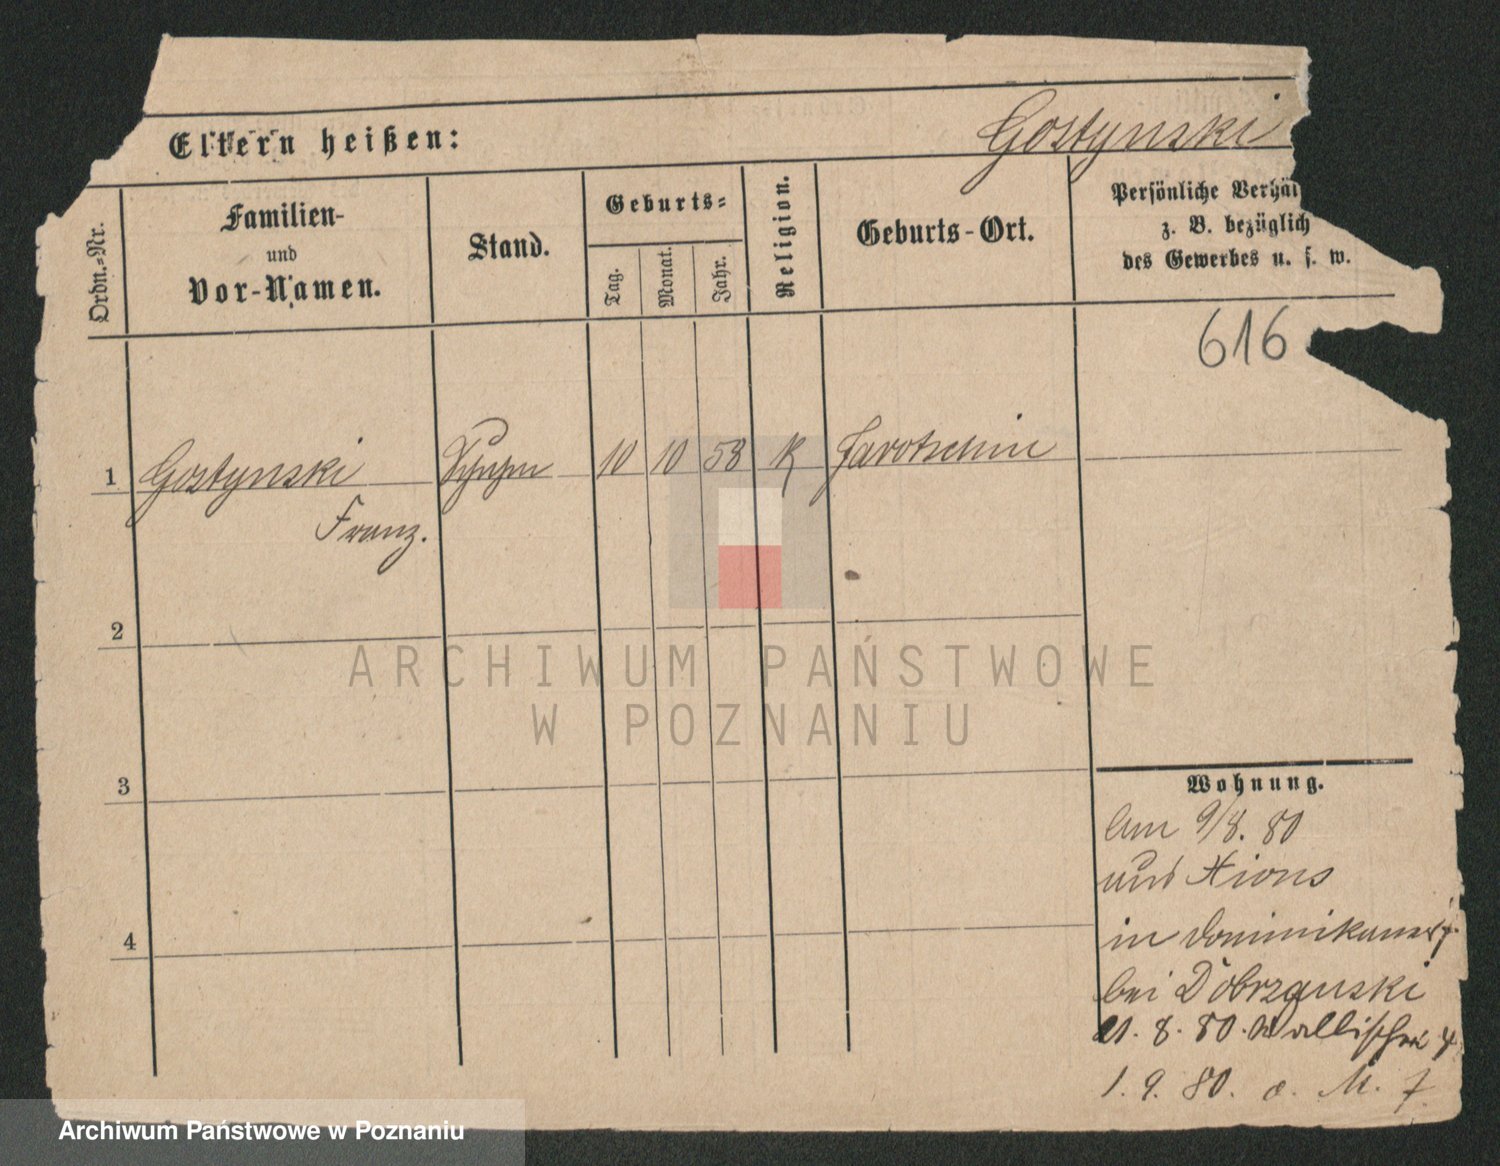 Eltern heißen:
Gostynski
Ordn.-Nr.
Familien-
und
Vor-Namen.
Stand.
Geburts-
Tag.
Monat.
Jahr.
Religion.
Geburts-Ort.
Persönliche Verhäl
z. B. bezüglich
des Gewerbes u. s. w.
616
1 Gostynski 10 10 58 K Jarotschin
Franz.
2
3
4
Wohnung.
Am 9/8. 80
aus Xions
in Dominikanerst
bei Dobrzanski
21. 8. 80. Wallischei 4
1. 9. 80. a. M. 7
ARCHIWUM PAŃSTWOWE
W POZNANIU
Archiwum Państwowe w Poznaniu